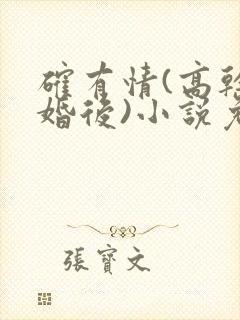 確有情(高幹
婚後)小說
張寶文